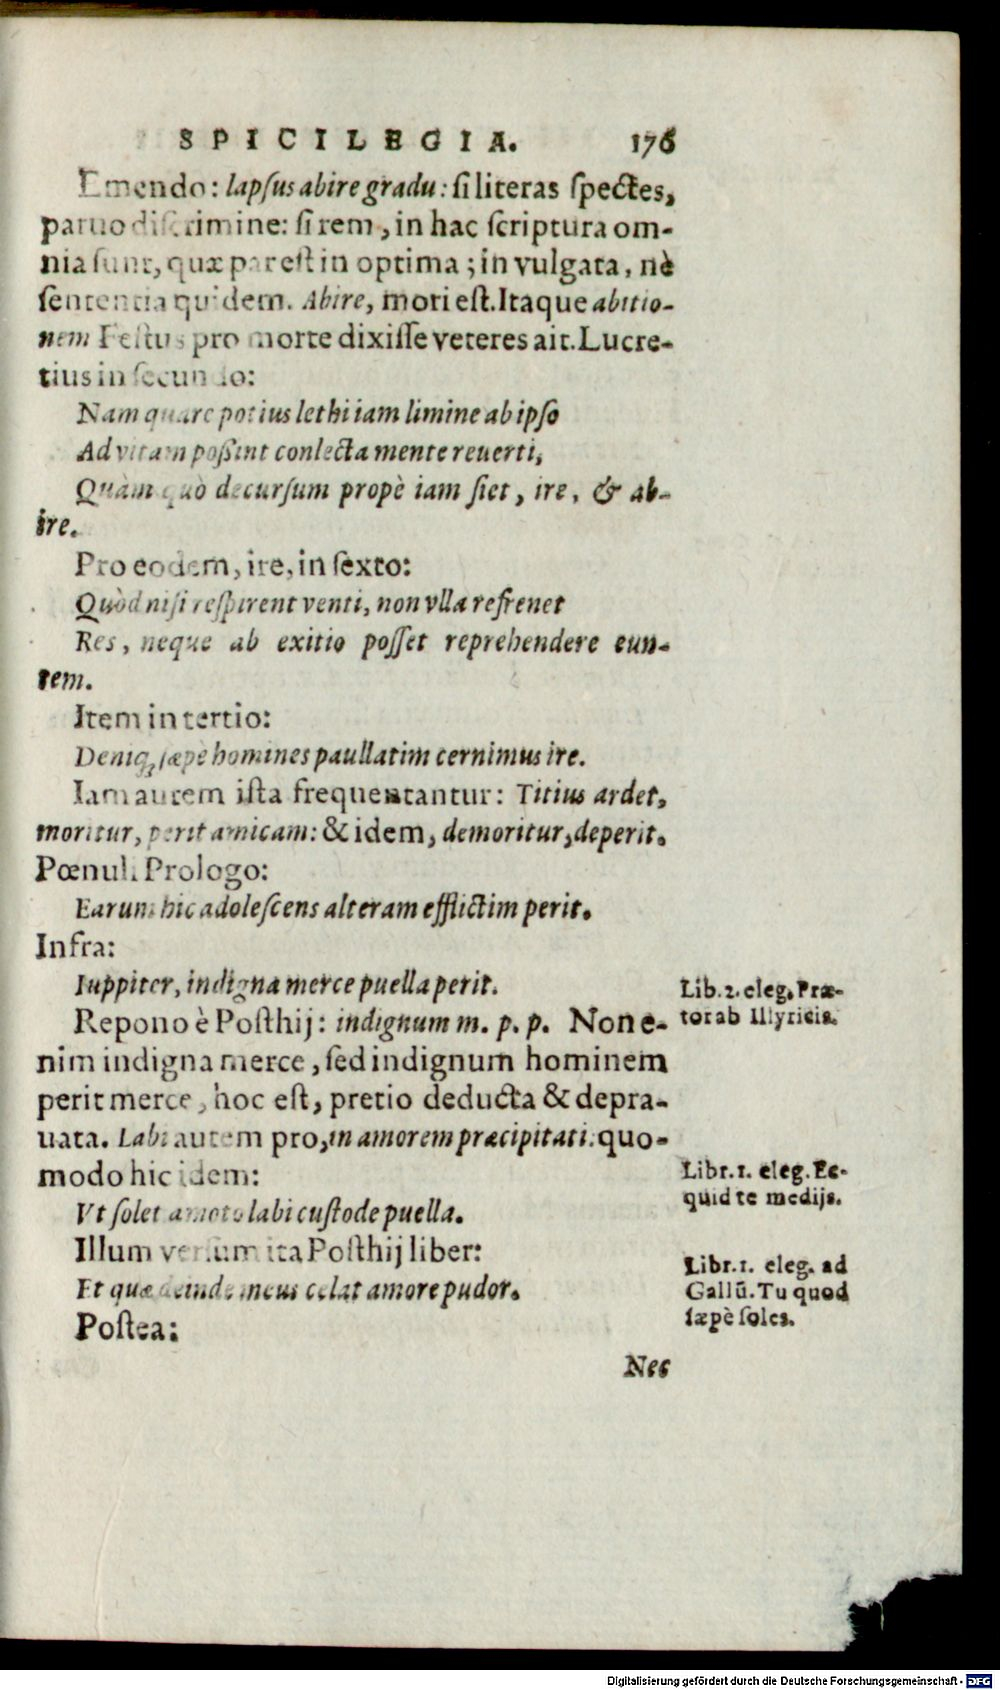 SPICILEGIA. 176
Emendo: lapsus abire gradu: si literas spectes,
paruo discrimine: si rem, in hac scriptura om-
nia sunt, quæ par est in optima; in vulgata, nè
sententia quidem. Abire, mori est. Itaque abitio-
nem Festus pro morte dixisse veteres ait. Lucre-
tius in secundo:
Nam quare potius lethi iam limine ab ipso
Ad vitam possint conlecta mente reuerti,
Quàm quò decursum propè iam siet, ire, & ab-
ire.
Pro eodem, ire, in sexto:
Quòd nisi respirent venti, non vlla refrenet
Res, neque ab exitio posset reprehendere eun-
tem.
Item in tertio:
Deniq; sæpè homines paullatim cernimus ire.
Iam autem ista frequentantur: Titius ardet,
moritur, perit amicam: & idem, demoritur, deperit.
Pœnul. Prologo:
Earum hic adolescens alteram efflictim perit.
Infra:
Iuppiter, indigna merce puella perit.
Lib. 2. eleg. Præ-
tor ab Illyricis.
Repono è Posthij: indignum m. p. p. Non e-
nim indigna merce, sed indignum hominem
perit merce, hoc est, pretio deducta & depra-
uata. Labi autem pro, in amorem præcipitati: quo-
modo hic idem:
Libr. 1. eleg. Ec-
quid te medijs.
Vt solet amoto labi custode puella.
Illum versum ita Posthij liber:
Et quæ deinde meus celat amore pudor.
Libr. 1. eleg. ad
Gallū. Tu quod
sæpè soles.
Postea:
Nec
Digitalisierung gefördert durch die Deutsche Forschungsgemeinschaft - DFG